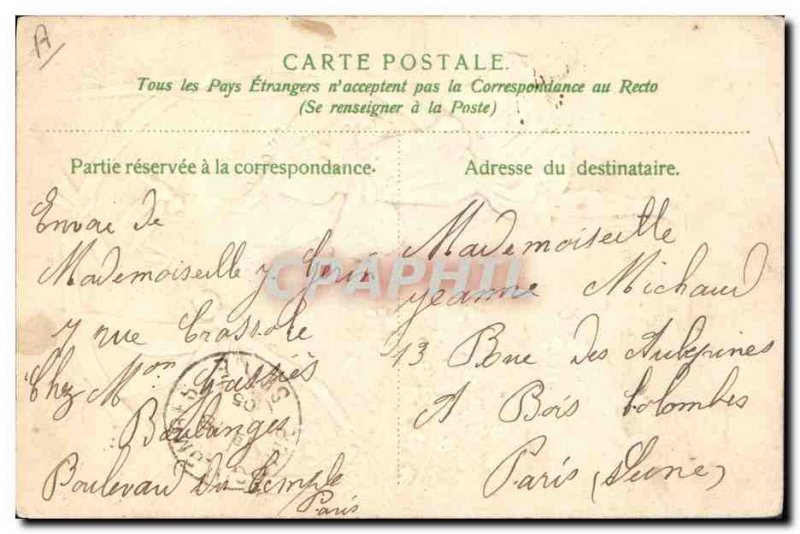 A
CARTE POSTALE.
Tous les Pays Étrangers n'acceptent pas la Correspondance au Recto
(Se renseigner à la Poste)
Partie réservée à la correspondance.
Envoie de
Mademoiselle J. Gerin
7 rue Crussole
Chez Mon Gassiès
Boulanges
Boulevard du Temple
Paris
Adresse du destinataire.
Mademoiselle
Jeanne Michaud
13 Rue des Aubepines
A Bois Colombes
Paris (Seine)
CPAPHIL